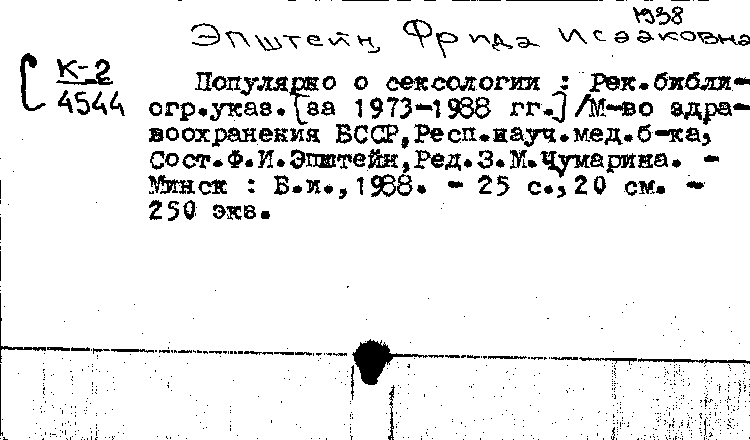 1938
Эпштейн, Фрида Исааковна
К-2
4544
Популярно о сексологии : Рек.библи-
огр.указ.[за 1973-1988 гг.]/М-во здра-
воохранения БССР,Респ.науч.мед.б-ка;
Сост.Ф.И.Эпштейн,Ред.З.М.Чумарина. -
Минск : Б.и.,1988. - 25 с.;20 см. -
250 экз.